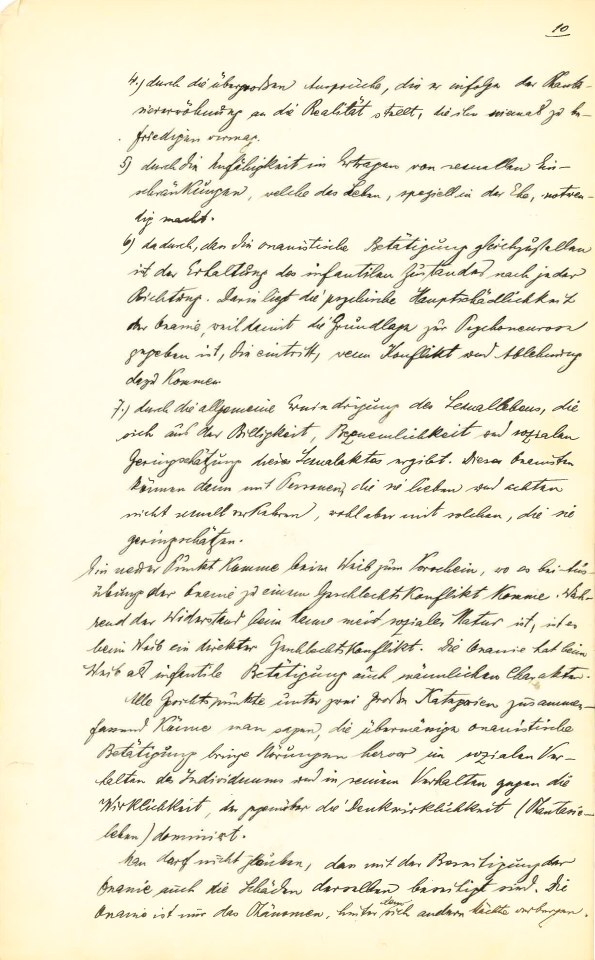 10
4.) durch die übergroßen Ansprüche, die er infolge der Phanta-
sieverwöhnung an die Realität stellt, die ihn niemals zu be-
friedigen vermag.
5) durch die Unfähigkeit im Ertragen von sexuellen Ein-
schränkungen, welche das Leben, speziell in der Ehe, notwen-
dig macht.
6) dadurch, dass die onanistische Betätigung gleichzustellen
ist der Erhaltung des infantilen Zustandes nach jeder
Richtung. Darin liegt die psychische Hauptschädlichkeit
der Onanie, weil damit die Grundlage zur Psychoneurose
gegeben ist, die eintritt, wenn Konflikt und Ablehnung
dazu kommen
7.) durch die allgemeine Erniedrigung des Sexuallebens, die
sich aus der Billigkeit, Bequemlichkeit und sozialen
Geringschätzung dieses Sexualaktes ergibt. Diese Onanisten
können dann mit Personen, die sie lieben und achten
nicht sexuell verkehren, wohl aber mit solchen, die sie
geringschätzen.
Ein neuer Punkt komme beim Weib zum Vorschein, wo es bei Aus-
übung der Onanie zu einem Geschlechtskonflikt komme. Wäh-
rend der Widerstand beim Manne meist sozialer Natur ist, ist es
beim Weib ein direkter Geschlechtskonflikt. Die Onanie hat beim
Weib als infantile Betätigung auch männlichen Charakter.
Alle Gesichtspunkte unter zwei große Kategorien zusammen-
fassend könne man sagen, die übermässige onanistische
Betätigung bringe Störungen hervor im sozialen Ver-
halten des Individuums und in seinem Verhalten gegen die
Wirklichkeit, der gegenüber die Denkwirklichkeit (Phantasie-
leben) dominirt.
Man darf nicht glauben, dass mit der Beseitigung der
Onanie auch die Schäden derselben beseitigt sind. Die
Onanie ist nur das Phänomen, hinter dem sich andere Mächte verbergen.